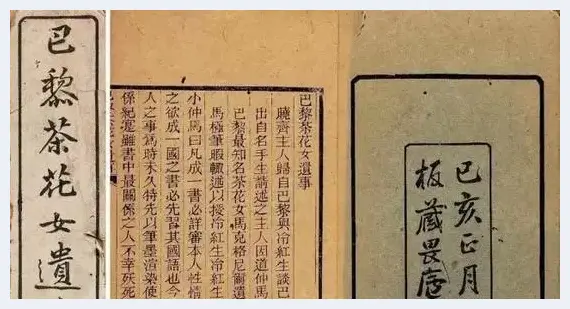 巴黎茶花女遺
巴黎茶花女遺事
曉齋主人歸自巴黎與冷紅生談巴
出自名手生請述之主人因道仲馬
巴黎最知名茶花女馬克格尼爾遺
馬極筆暇輙述以授冷紅生冷紅生
小仲馬曰凡成一書必詳審本人性情
之欲成一國之書必先習其國語也今
人之事爲時未久特先以筆墨渲染使
係紀寔雖書中最關係之人不幸妖死
己亥正月
板藏畏廬